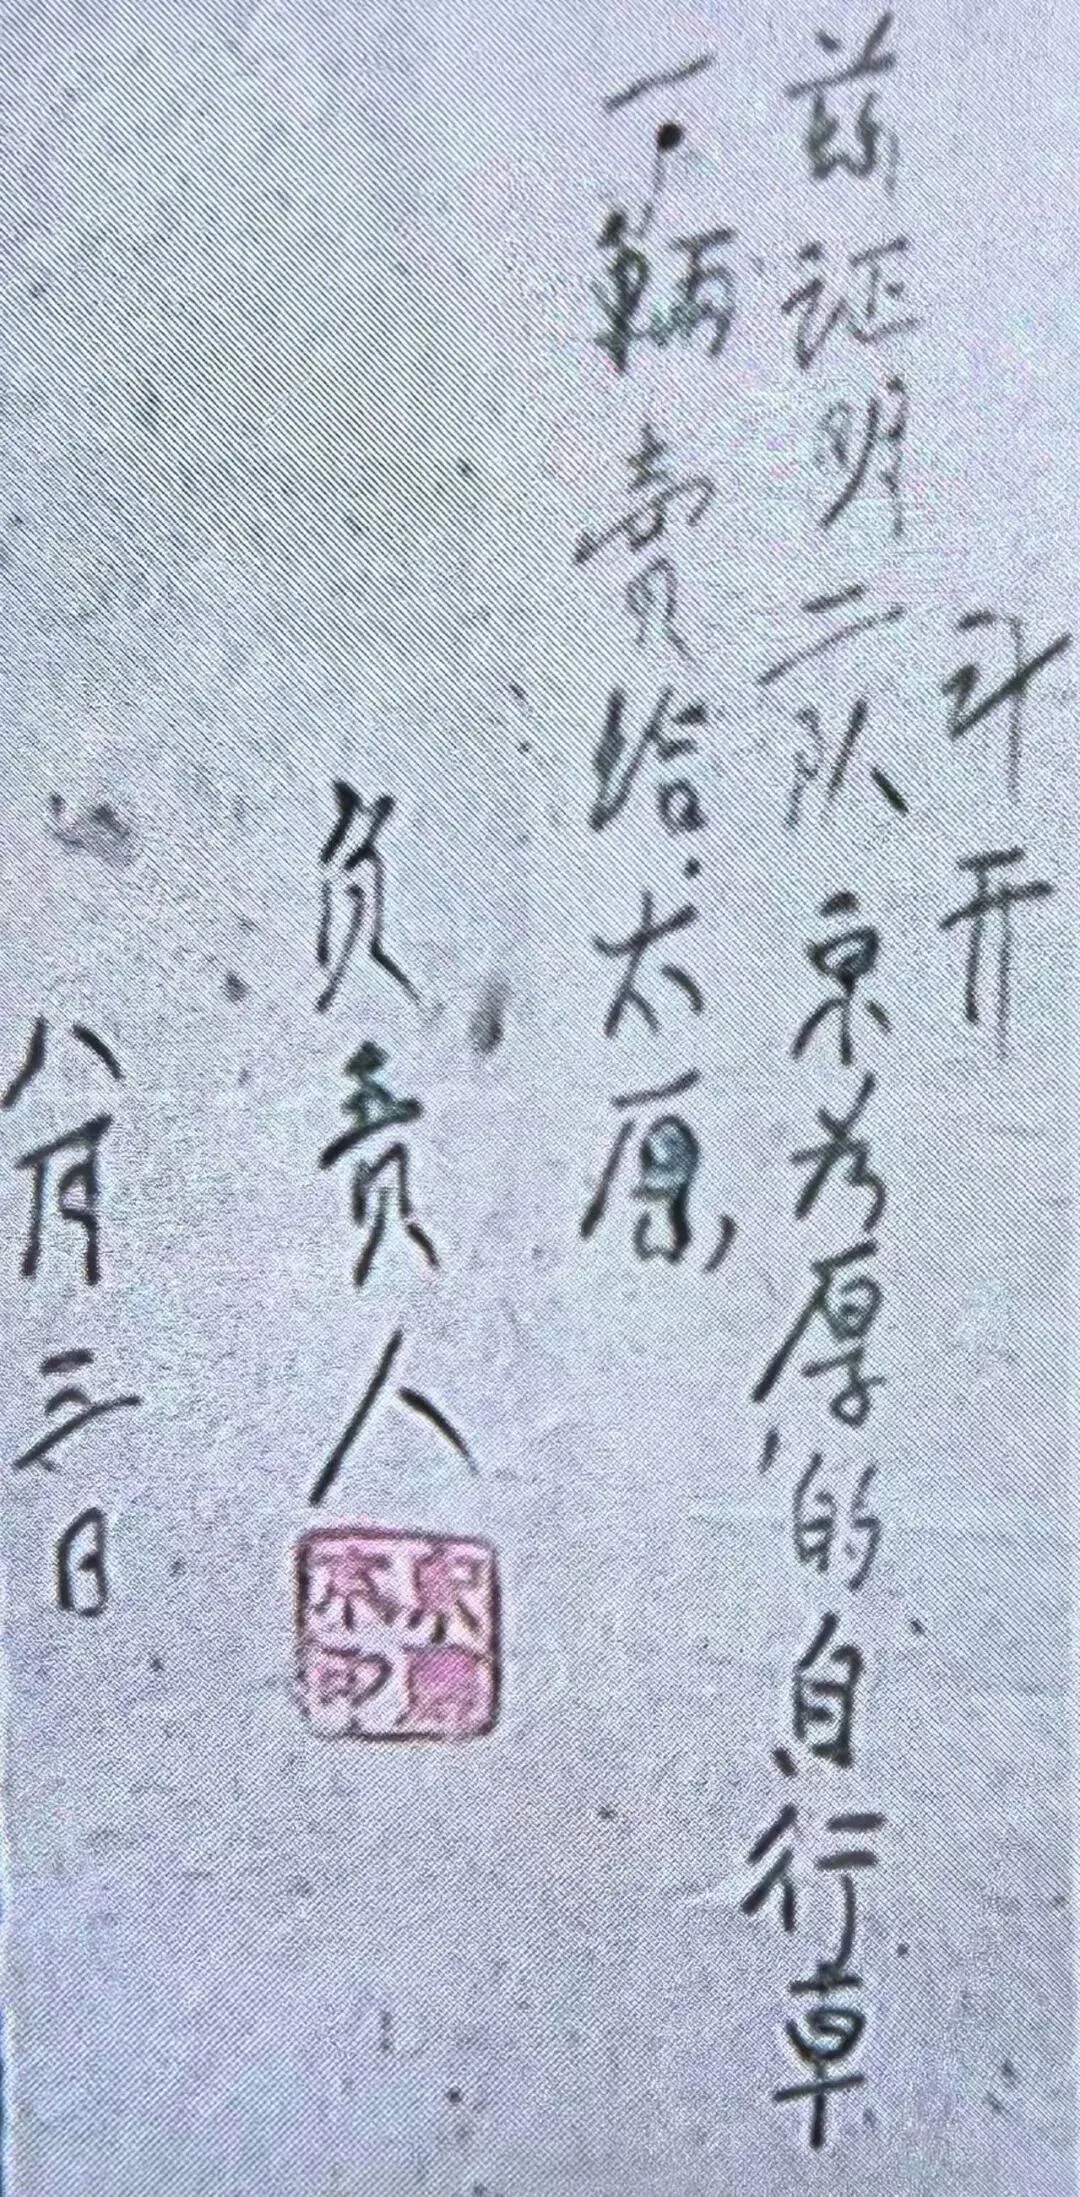 计开
兹证明二队京为厚的自行車
一辆卖给太原
负责人
八月三日